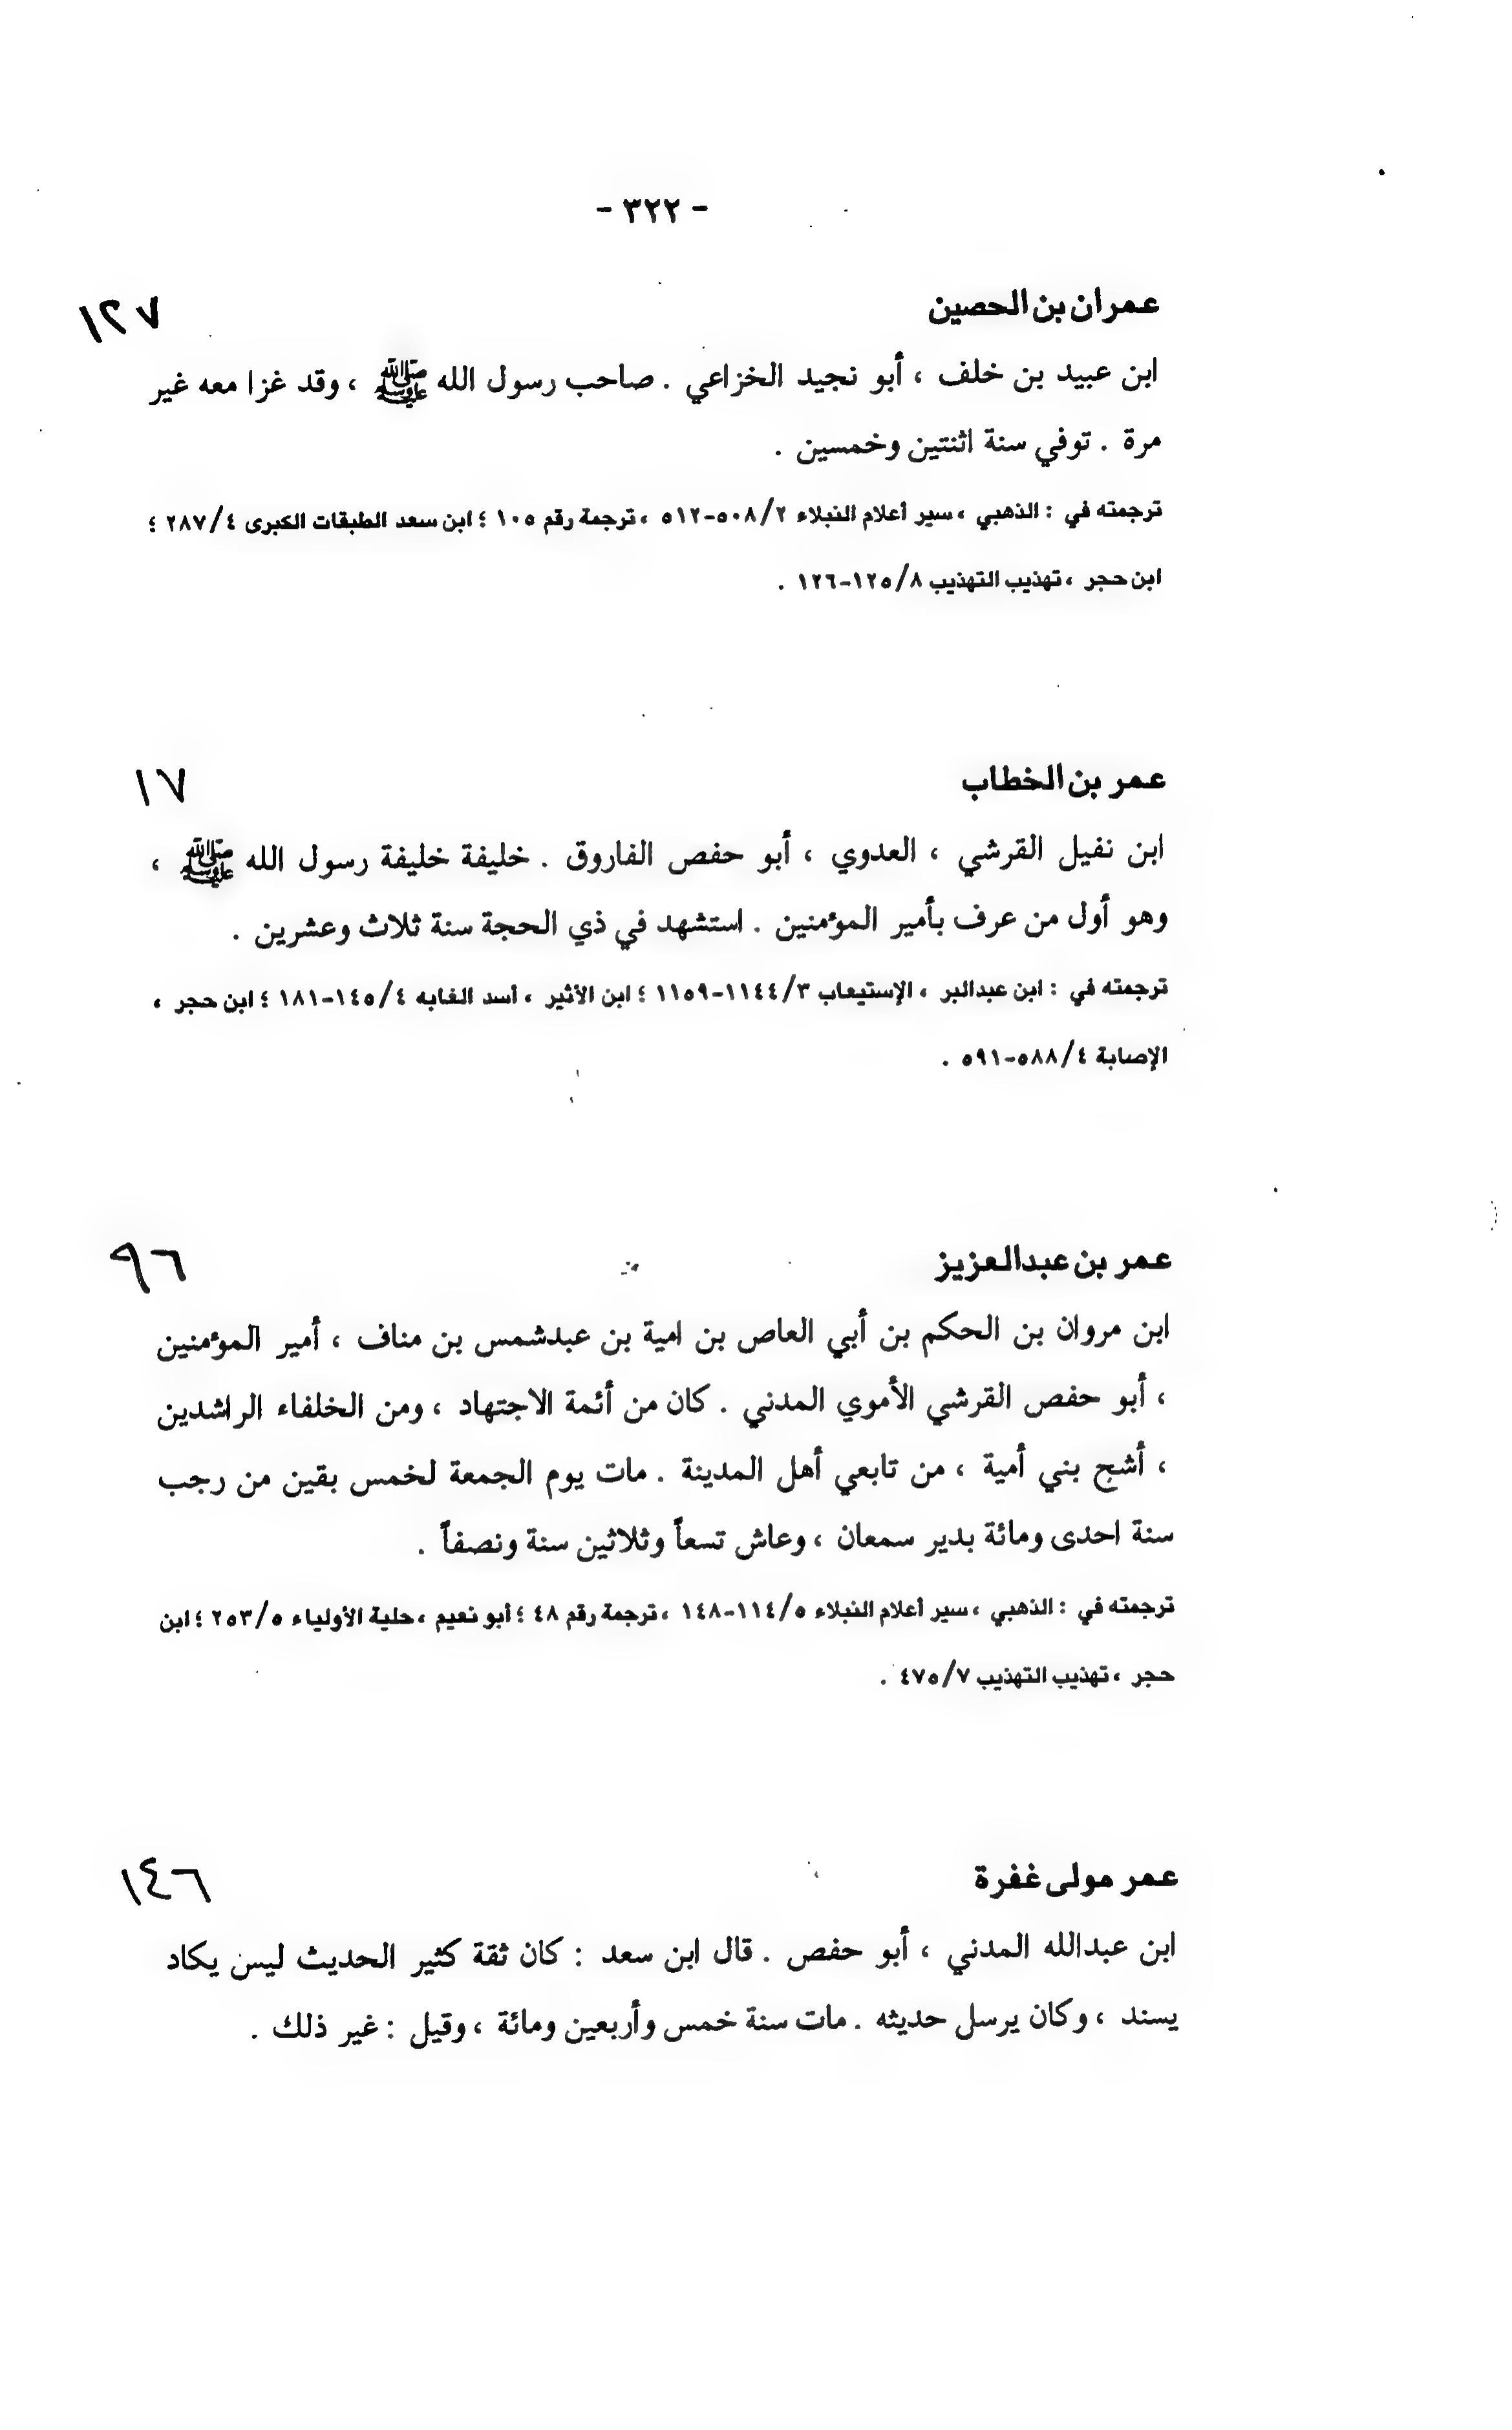 - ٣٢٢ -
عمران بن الحصين ١٢٧
ابن عبيد بن خلف ، أبو نجيد الخزاعي . صاحب رسول الله ﷺ ، وقد غزا معه غير
مرة . توفي سنة اثنتين وخمسين .
ترجمته في : الذهبي ، سير أعلام النبلاء ٥٠٨/٢-٥١٢ ، ترجمة رقم ١٠٥ ؛ ابن سعد الطبقات الكبرى ٢٨٧/٤ ؛
ابن حجر ، تهذيب التهذيب ١٢٥/٨-١٢٦ .
عمر بن الخطاب ١٧
ابن نفيل القرشي ، العدوي ، أبو حفص الفاروق . خليفة خليفة رسول الله ﷺ ،
وهو أول من عرف بأمير المؤمنين . استشهد في ذي الحجة سنة ثلاث وعشرين .
ترجمته في : ابن عبدالبر ، الإستيعاب ١١٤٤/٣-١١٥٩ ؛ ابن الأثير ، أسد الغابه ١٤٥/٤-١٨١ ؛ ابن حجر ،
الإصابة ٥٨٨/٤-٥٩١ .
عمر بن عبدالعزيز ٩٦
ابن مروان بن الحكم بن أبي العاص بن امية بن عبدشمس بن مناف ، أمير المؤمنين
، أبو حفص القرشي الأموي المدني . كان من أئمة الاجتهاد ، ومن الخلفاء الراشدين
، أشج بني أمية ، من تابعي أهل المدينة . مات يوم الجمعة لخمس بقين من رجب
سنة احدى ومائة بدير سمعان ، وعاش تسعاً وثلاثين سنة ونصفاً .
ترجمته في : الذهبي ، سير أعلام النبلاء ١١٤/٥-١٤٨ ، ترجمة رقم ٤٨ ؛ أبو نعيم ، حلية الأولياء ٢٥٣/٥ ؛ ابن
حجر ، تهذيب التهذيب ٤٧٥/٧ .
عمر مولى غفرة ١٤٦
ابن عبدالله المدني ، أبو حفص . قال ابن سعد : كان ثقة كثير الحديث ليس يكاد
يسند ، وكان يرسل حديثه . مات سنة خمس وأربعين ومائة ، وقيل : غير ذلك .